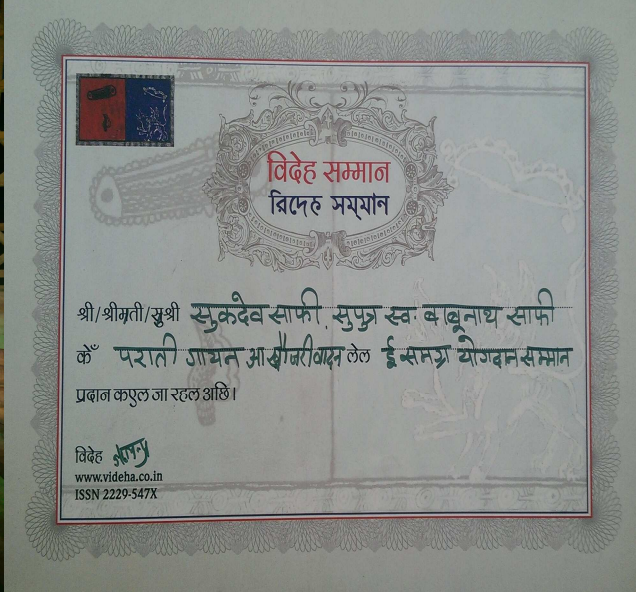 विदेह सम्मान
𑒫𑒱𑒠𑒹𑒯 𑒮𑒧𑓂𑒧𑒰𑒢
श्री/श्रीमती/सुश्री सुकदेव साफी, सुपुत्र स्व. बाबूनाथ साफी
केँ पराती गायन आ खौजरी वादन लेल ई समग्र योगदान सम्मान
प्रदान कएल जा रहल अछि।
विदेह
www.videha.co.in
ISSN 2229-547X